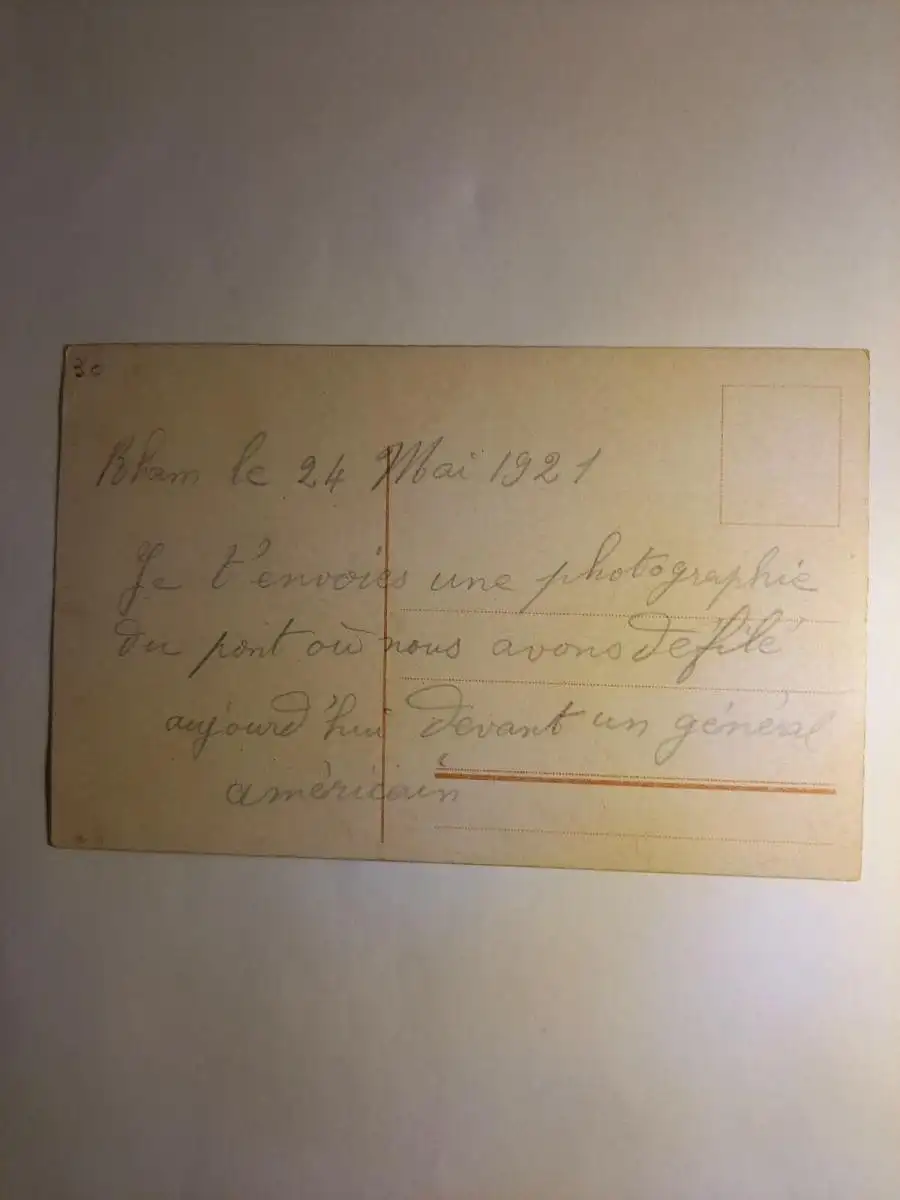 30
Rham le 24 Mai 1921
Je t'envoies une photographie
du pont où nous avons défilé
aujourd'hui devant un général
américain